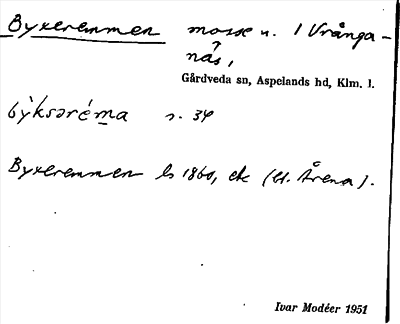 Byxeremmen mosse n. / Vrånga-
näs,
Gårdveda sn, Aspelands hd, Klm. l.
by̆ksəréma s. 34
Byxeremmen ls 1860, ek (bl. Årena).
Ivar Modéer 1951